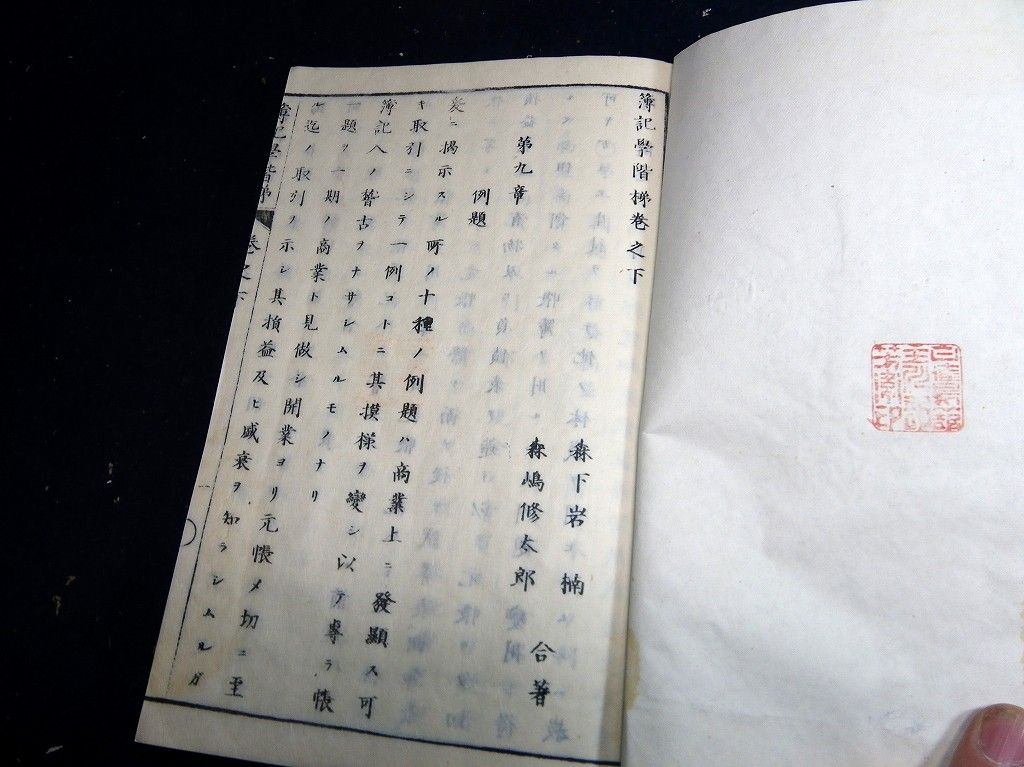 簿記學階梯巻之下
森下岩楠
森嶋修太郎
合著
第九章
例題
爰ニ掲示スル所ノ十種ノ例題ハ商業上ニ發顯ス可
キ取引ニシテ一例コトニ其摸様ヲ變シ以テ專ラ帳
簿記入ノ稽古ヲナサシムルモノナリ
題ヲ一期ノ商業ト見做シ開業ヨリ元帳〆切ニ至
迄ノ取引ヲ示シ其損益及ヒ盛衰ヲ知ラシムルガ
簿記學階梯
巻之下